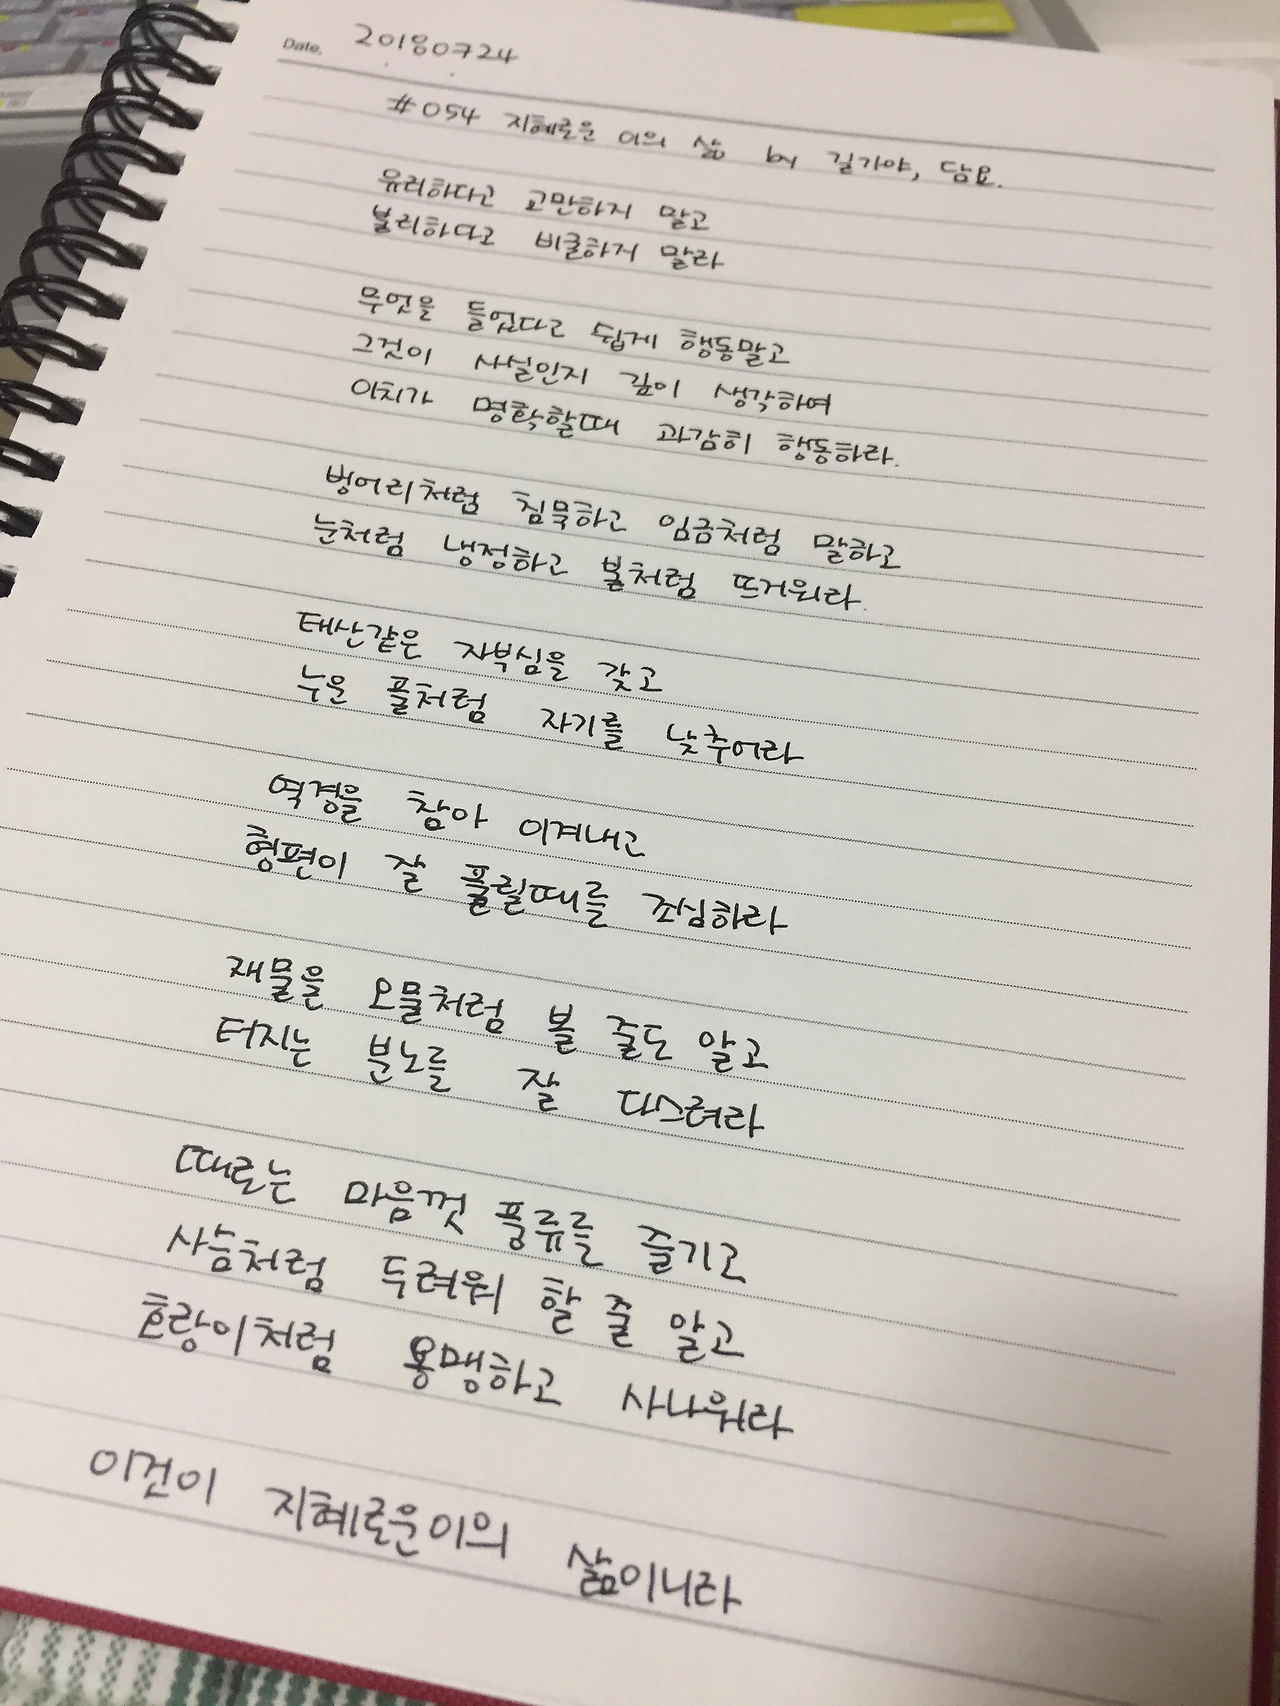 Date. 20180724
#054 지혜로운 이의 삶 by 길가야, 담요.
유리하다고 교만하지 말고
불리하다고 비굴하지 말라
무엇을 들었다고 쉽게 행동말고
그것이 사실인지 깊이 생각하여
이치가 명확할때 과감히 행동하라.
벙어리처럼 침묵하고 임금처럼 말하고
눈처럼 냉정하고 불처럼 뜨거워라.
태산같은 자부심을 갖고
누운 풀처럼 자기를 낮추어라
역경을 참아 이겨내고
형편이 잘 풀릴때를 조심하라
재물을 오물처럼 볼 줄도 알고
터지는 분노를 잘 다스려라
때로는 마음껏 풍류를 즐기고
사슴처럼 두려워 할 줄 알고
호랑이처럼 용맹하고 사나워라
이것이 지혜로운이의 삶이니라